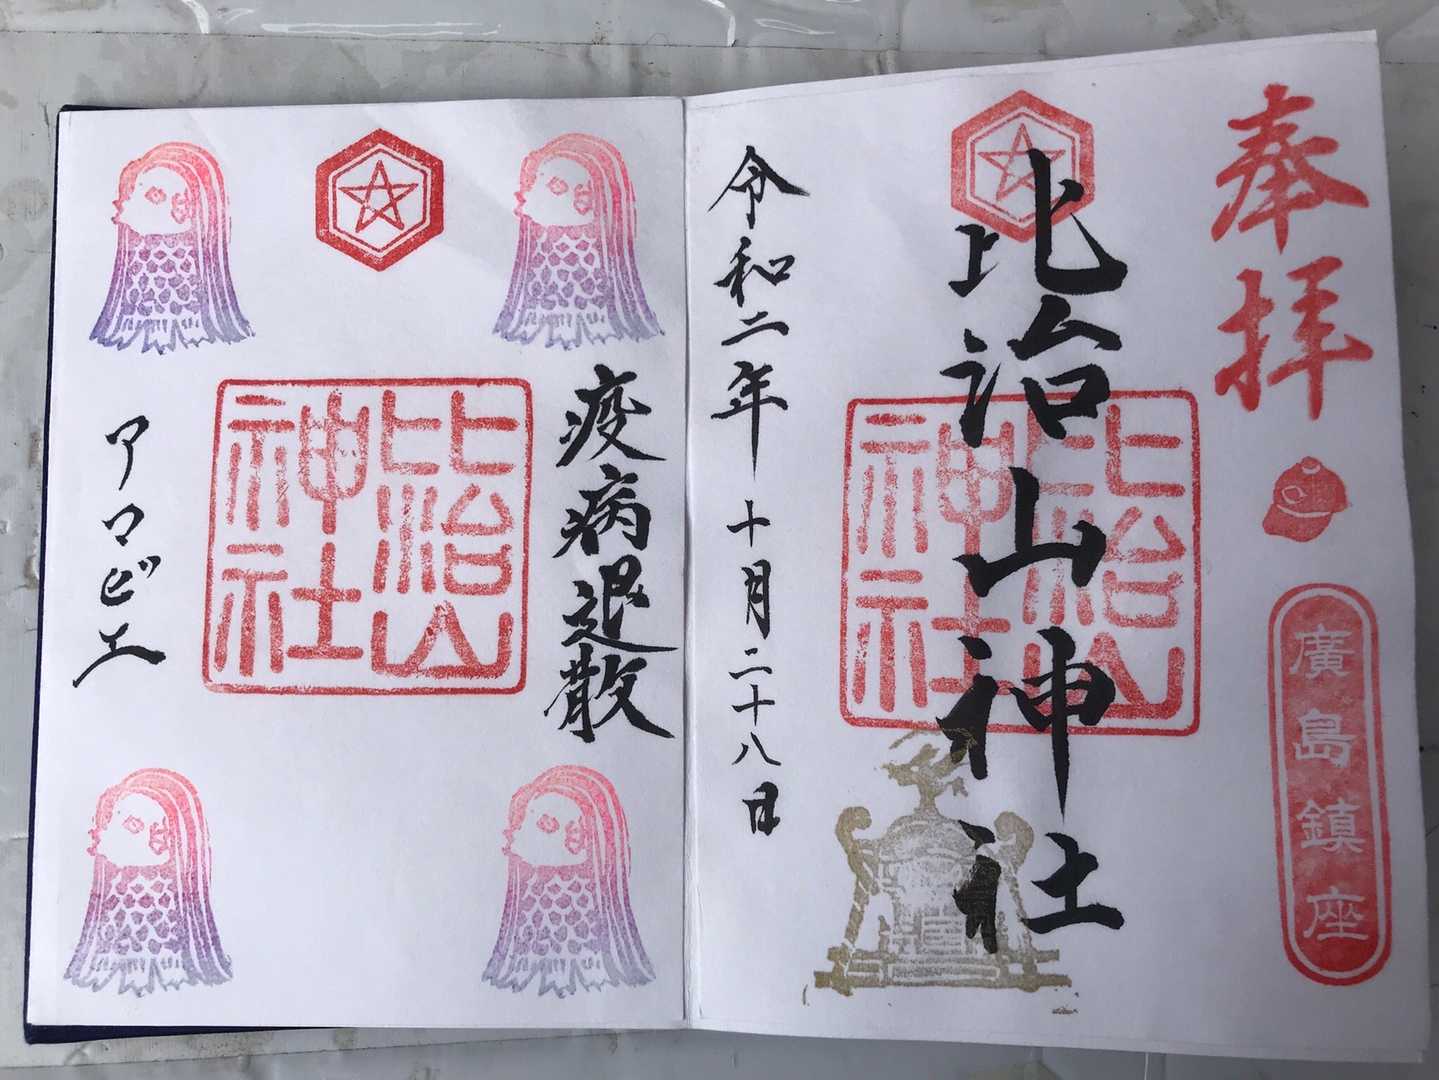 奉拝
廣島鎮座
比治山神社
比治山神社
令和二年十月二十八日
疫病退散
比治山神社
アマビエ